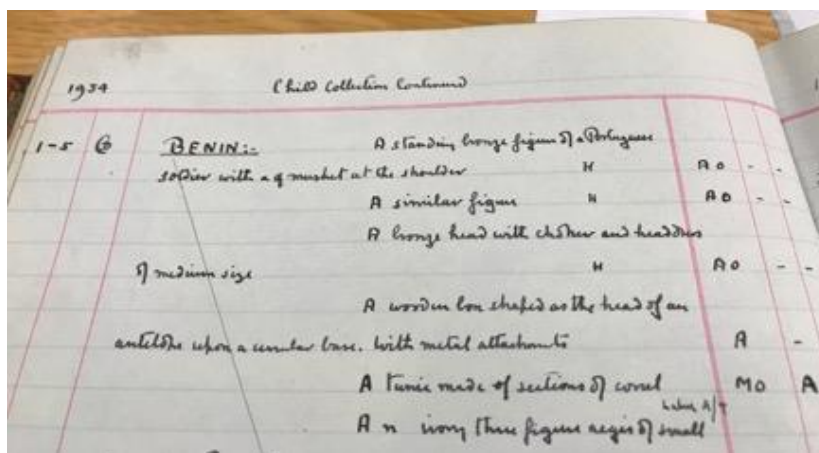 1934 Child Collection Continued
1-5 BENIN:- A standing bronze figure of a Portuguese
soldier with a musket at the shoulder H A0 - -
A similar figure H A0 - -
A bronze head with choker and headdress
of medium size H A0 - -
A wooden box shaped as the head of an
antelope upon a circular base. With metal attachments A -
A tunic made of sections of coral M0 A
A n ivory three figure aegis of small